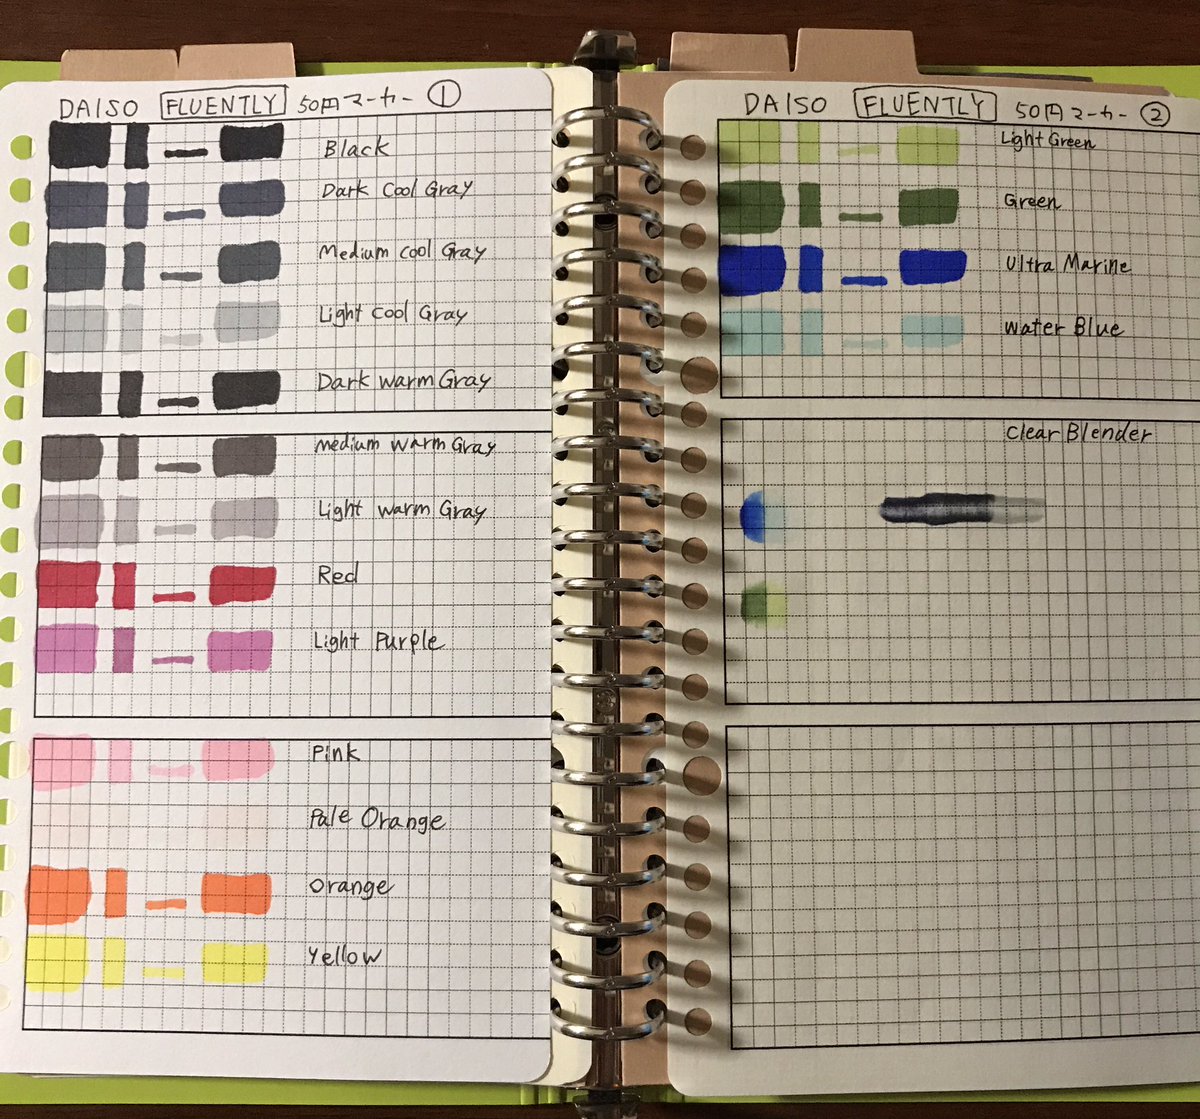 DAISO FLUENTLY 50円マーカー ①
Black
Dark Cool Gray
Medium Cool Gray
Light Cool Gray
Dark Warm Gray
Medium Warm Gray
Light Warm Gray
Red
Light Purple
Pink
Pale Orange
Orange
Yellow
DAISO FLUENTLY 50円マーカー ②
Light Green
Green
Ultra Marine
Water Blue
Clear Blender